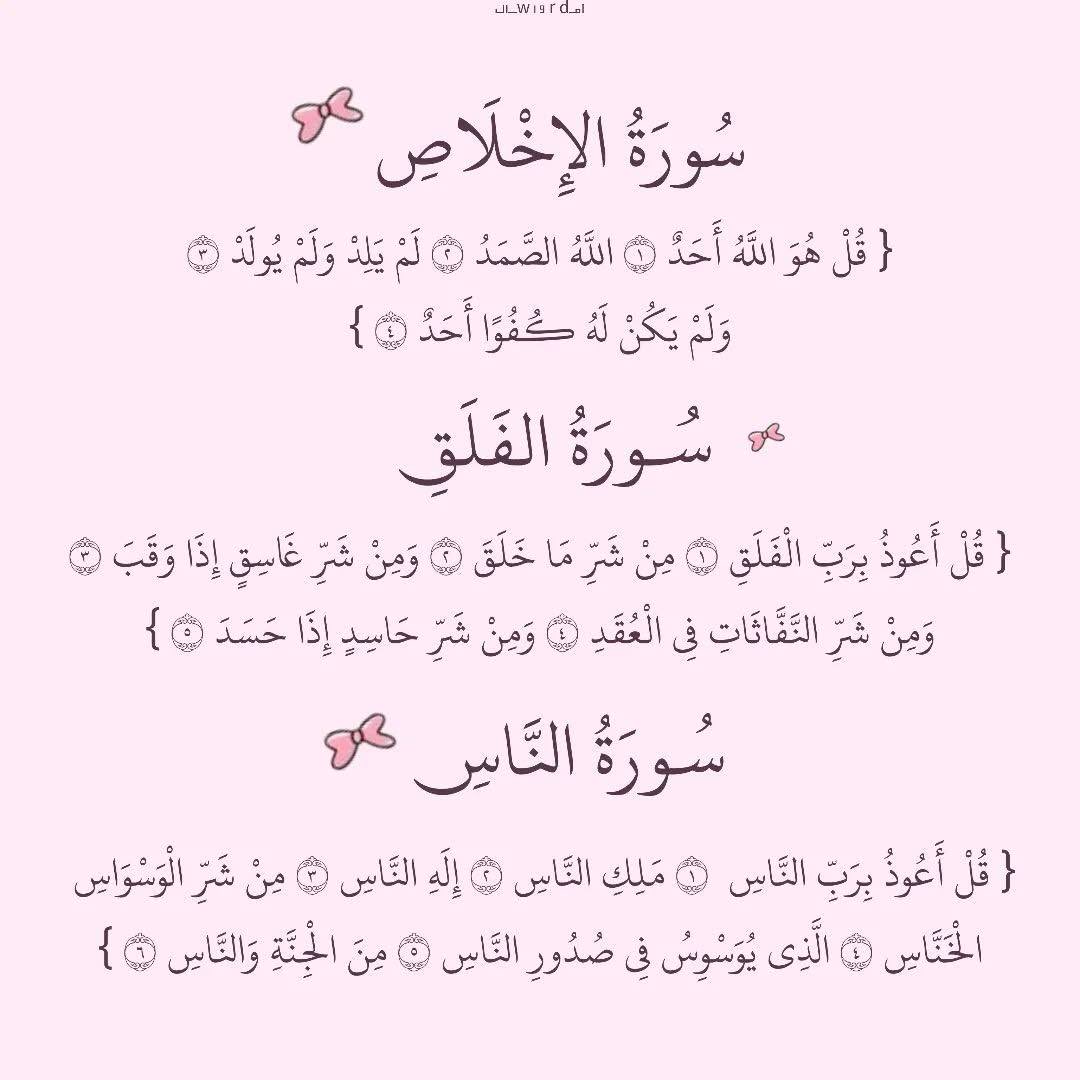 سُورَةُ الإِخْلَاصِ
{ قُلْ هُوَ اللَّهُ أَحَدٌ ۝١ اللَّهُ الصَّمَدُ ۝٢ لَمْ يَلِدْ وَلَمْ يُولَدْ ۝٣
وَلَمْ يَكُنْ لَهُ كُفُوًا أَحَدٌ ۝٤ }
سُورَةُ الفَلَقِ
{ قُلْ أَعُوذُ بِرَبِّ الْفَلَقِ ۝١ مِنْ شَرِّ مَا خَلَقَ ۝٢ وَمِنْ شَرِّ غَاسِقٍ إِذَا وَقَبَ ۝٣
وَمِنْ شَرِّ النَّفَّاثَاتِ فِى الْعُقَدِ ۝٤ وَمِنْ شَرِّ حَاسِدٍ إِذَا حَسَدَ ۝٥ }
سُورَةُ النَّاسِ
{ قُلْ أَعُوذُ بِرَبِّ النَّاسِ ۝١ مَلِكِ النَّاسِ ۝٢ إِلَهِ النَّاسِ ۝٣ مِنْ شَرِّ الْوَسْوَاسِ
الْخَنَّاسِ ۝٤ الَّذِى يُوَسْوِسُ فِى صُدُورِ النَّاسِ ۝٥ مِنَ الْجِنَّةِ وَالنَّاسِ ۝٦ }